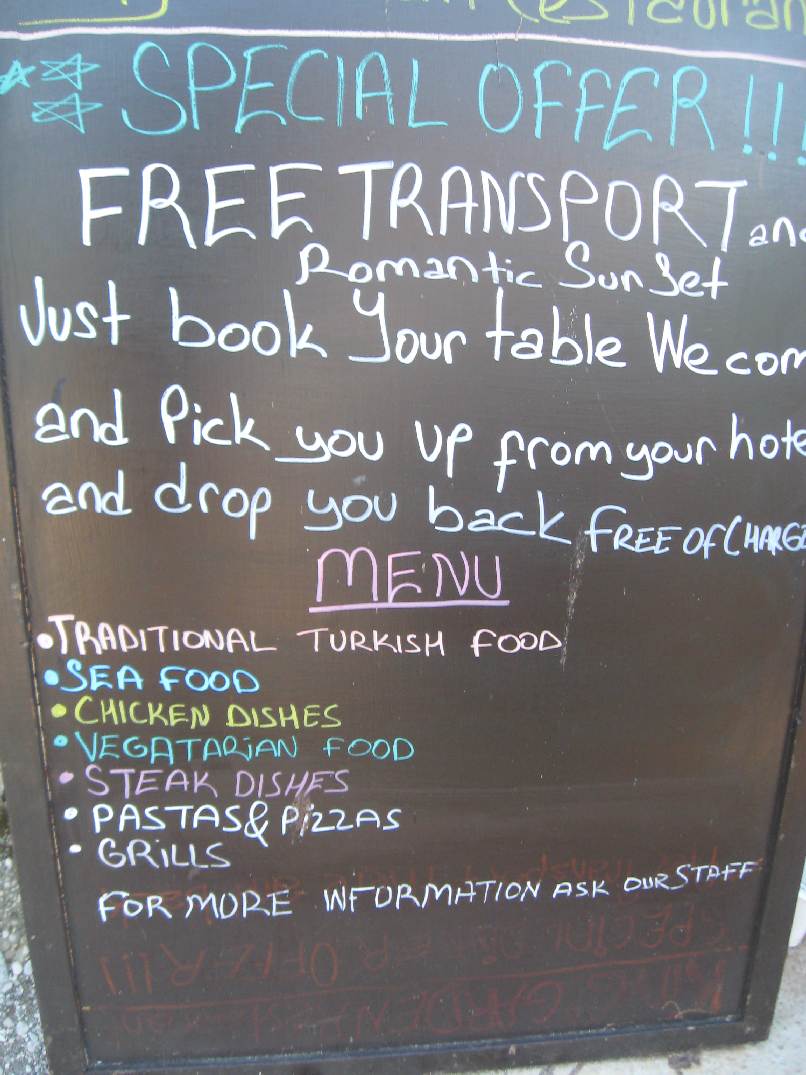 Restaurant
SPECIAL OFFER !!!
FREE TRANSPORT and
Romantic SunSet
Just book Your table We com
and Pick you up from your hote
and drop you back FREE OF CHARGE
MENU
•TRADITIONAL TURKISH FOOD
•SEA FOOD
•CHICKEN DISHES
•VEGATARiAN FOOD
•STEAK DISHES
•PASTAS& PiZZAS
•GRiLLS
FOR MORE INFORMATION ASK OUR STAFF
SPECIAL OFFER!!!